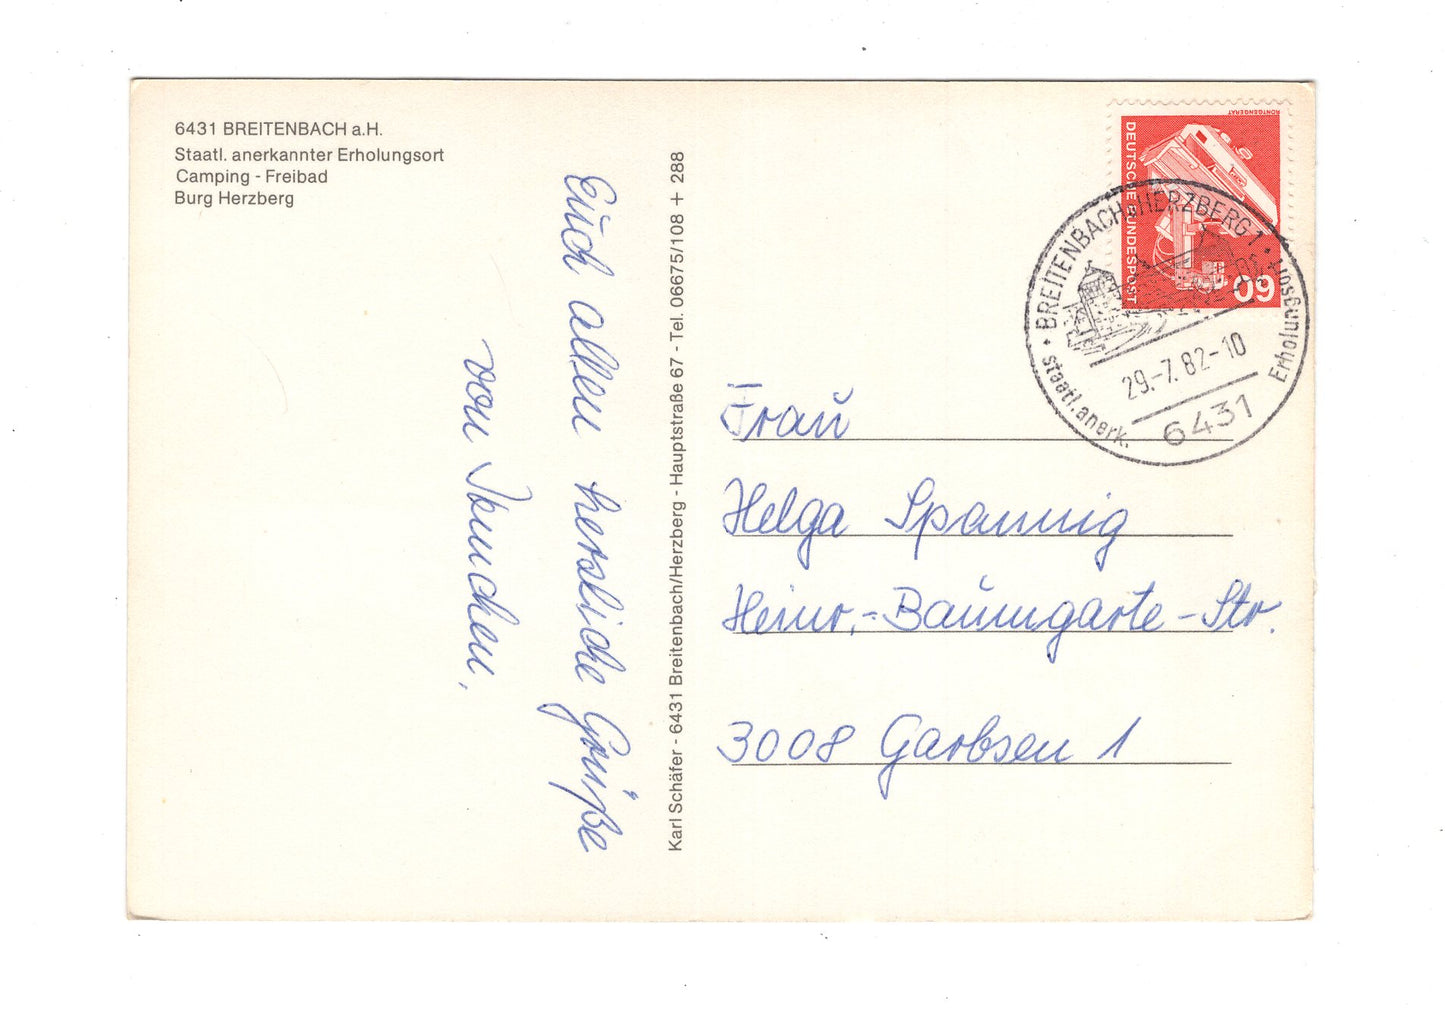 6431 BREITENBACH a.H.
Staatl. anerkannter Erholungsort
Camping - Freibad
Burg Herzberg
Euch allen herzliche Grüße
von
Karl Schäfer - 6431 Breitenbach/Herzberg - Hauptstraße 67 - Tel. 06675/108 + 288
RÖNTGENGERÄT
DEUTSCHE BUNDESPOST
60
BREITENBACH a. HERZBERG 1
staatl. anerk. Erholungsort
29.-7.82-10
6431
Frau
Helga Spannig
Heinr.-Baumgarte-Str.
3008 Garbsen 1